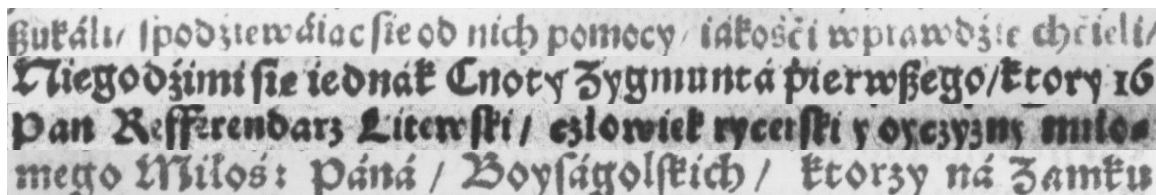 ßukáli/ spodźiewáiac sie od nich pomocy/ iákośći wprawdźie chćieli/
Niegodźimi sie iednák Cnoty Zygmuntá pierwßego/ ktory 16
Pan Refferendarz Litewski/ człowiek rycerski y oyczyzny miło⸗
mego Miłoś: Páná / Boyságolskich / ktorzy ná Zamku